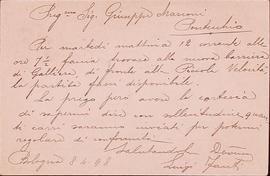 Preg.mo Sig. Giuseppe Marconi
Pontecchio
Per martedì mattina 12 corrente alle
ore 7½ faccia trovare alla nuova barriera
di Galliera, di fronte alla Piccola Velocità,
la partita fieni disponibile.
La prego però avere la cortesia
di sapermi dire con sollecitudine quan
ti carri saranno inviati per potermi
regolare di conformità.
Salutandola
Bologna 8.4.98
Luigi